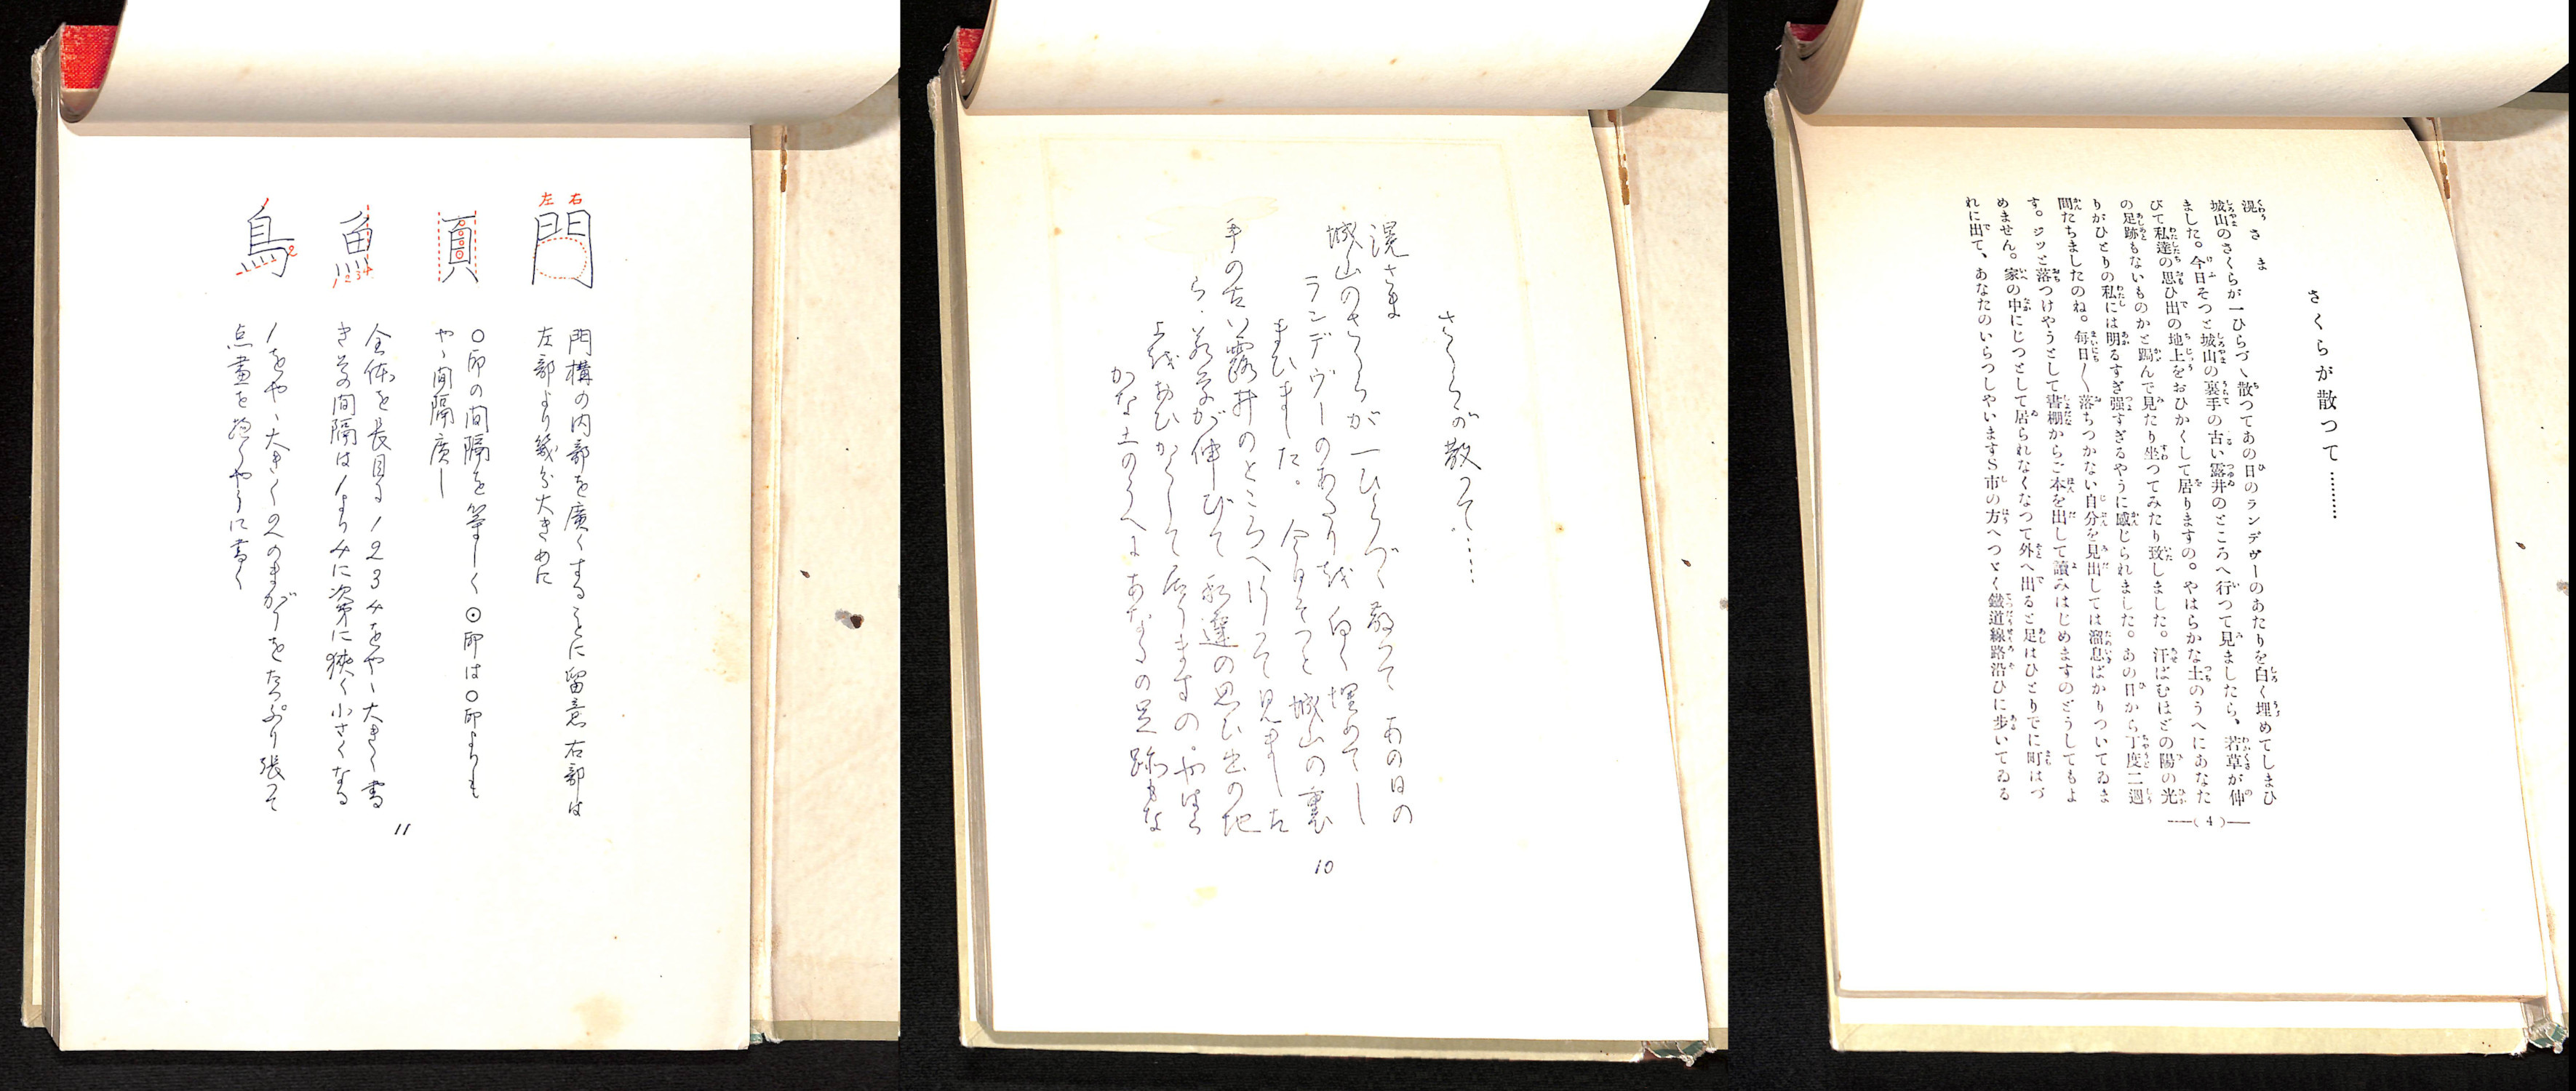 さくらが散つて………
滉さま
城山のさくらが一ひらづゝ散つてあの日のランデヴーのあたりを白く埋めてしまひ
ました。今日そつと城山の裏手の古い露井のところへ行つて見ましたら、若草が伸
びて私達の思ひ出の地上をおひかくして居りますの。やはらかな土のうへにあなた
の足跡もないものかと跼んで見たり坐つてみたり致しました。汗ばむほどの陽の光
りがひとりの私には明るすぎ强すぎるやうに感じられました。あの日から丁度二週
間たちましたのね。每日〳〵落ちつかない自分を見出しては溜息ばかりついてゐま
す。ジッと落つけやうとして書棚からご本を出して讀みはじめますのどうしてもよ
めません。家の中にじつとして居られなくなつて外へ出ると足はひとりでに町はづ
れに出て、あなたのいらつしやいますS市の方へつゞく鐵道線路沿ひに歩いてゐる
―( 4 )―
さくらが散つて……
滉さま
城山のさくらが一ひらづゝ散つてあの日の
ランデヴーのあたりを白く埋めてし
まひました。今日そつと城山の裏
手の古い露井のところへ行つて見ました
ら、若草が伸びて私達の思ひ出の地
上をおひかくして居りますの。やはら
かな土のうへにあなたの足跡もな
10
右
左
門
門構の内部を廣くすることに留意 右部は
左部より幾分大きめに
頁
○印の間隔を等しく⊙印は○印よりも
やゝ間隔廣し
魚
1234
全体を長目に1234をやゝ大きく書
き其の間隔は1より4に次第に狹く小さくなる
鳥
1
2
1をやゝ大きく2のまがりをたつぷり張つて
点畫を抱くやうに書く
11